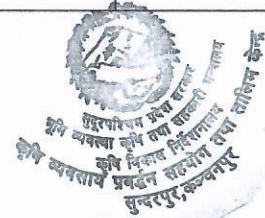 सुदूरपश्चिम प्रदेश सरकार
भूमि व्यवस्था कृषि तथा सहकारी मन्त्रालय
कृषि विकास निर्देशनालय
कृषि व्यवसाय प्रवर्द्धन सहयोग तथा तालिम केन्द्र
सुन्दरपुर, कञ्चनपुर